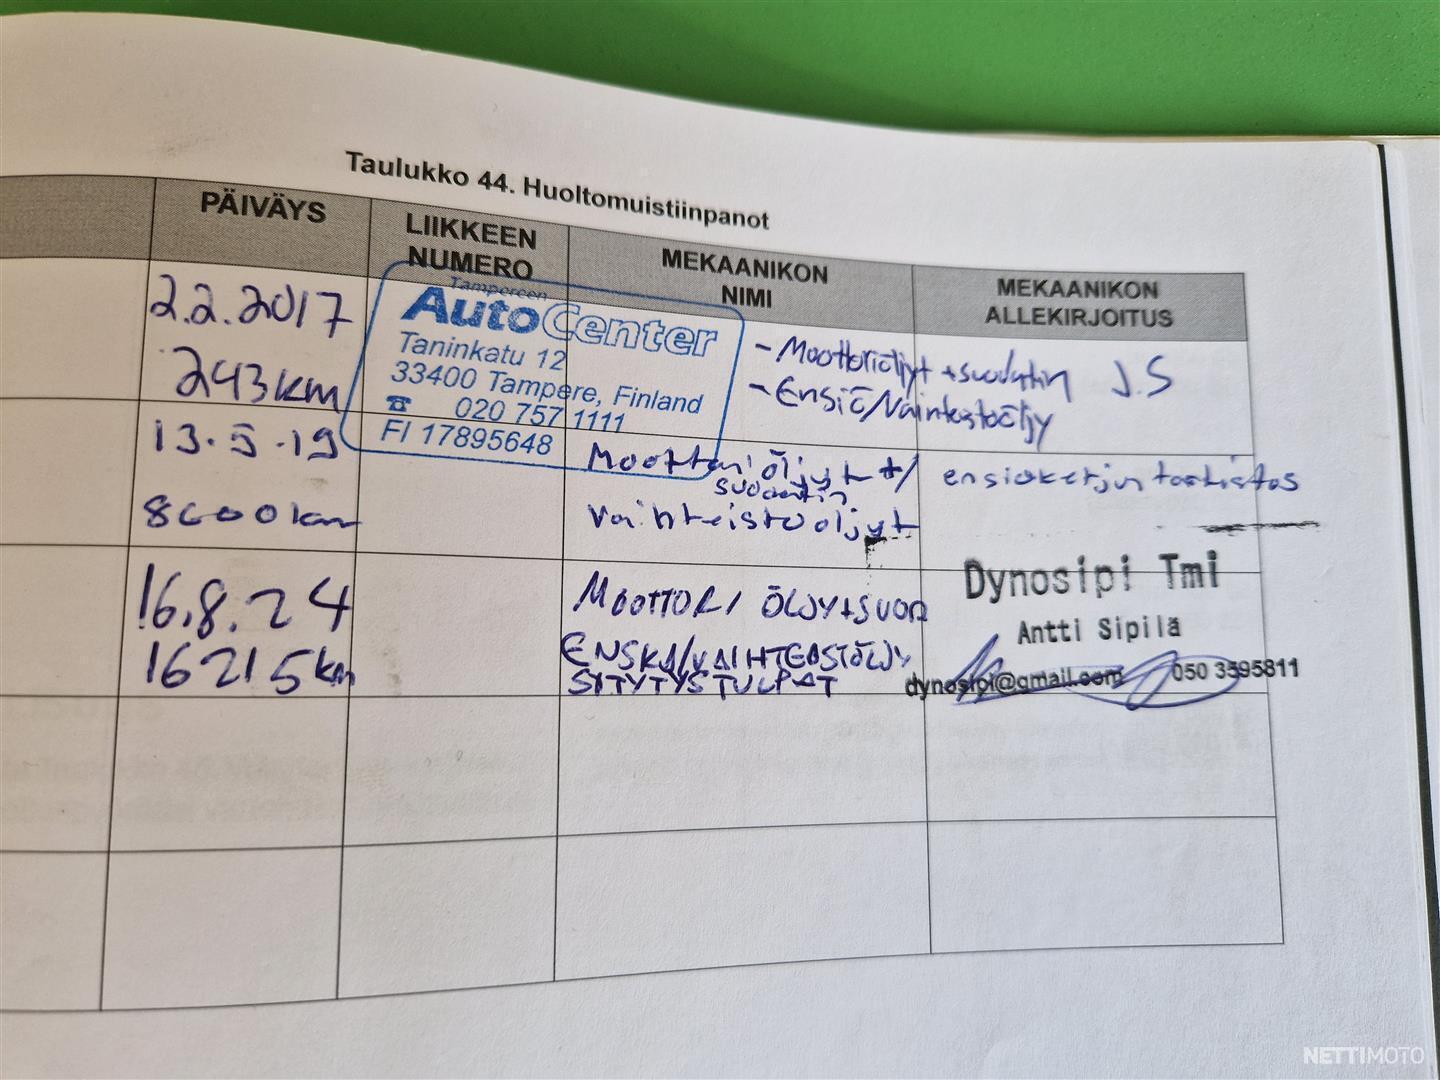 Taulukko 44. Huoltomuistiinpanot
PÄIVÄYS
LIIKKEEN
NUMERO
MEKAANIKON
NIMI
MEKAANIKON
ALLEKIRJOITUS
2.2.2017
243km
Tampereen
AutoCenter
Taninkatu 12
33400 Tampere, Finland
☎ 020 757 1111
FI 17895648
- Moottoriöljyt + suodatin J.S
- Ensiö/Vaihteistoöljy
13.5.19
8000km
Moottori öljyt +/
suodatin
vaihteistoöljyt
ensioketjun tarkistus
16.8.24
16215km
MOOTTORI ÖLJYT+SUOD
ENSKA/VAIHTEISTÖLJY
SYTYTYSTULPAT
Dynosipi Tmi
Antti Sipilä
dynosipi@gmail.com 050 3595811
NETTIMOTO